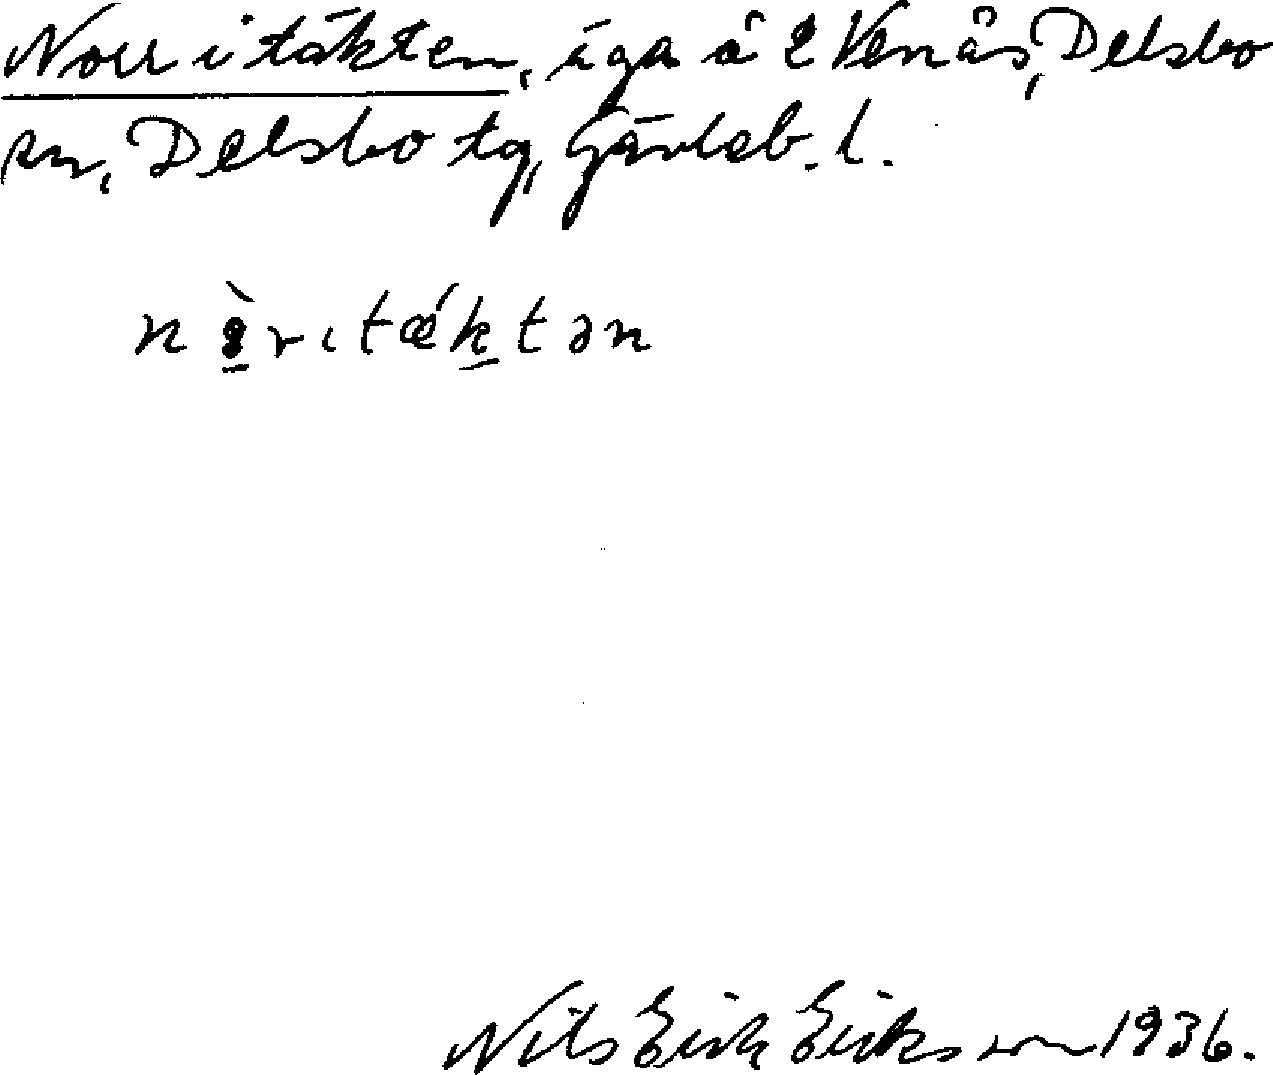 Norr i täkten, äga å 2 Venås, Delsbo
sn, Delsbo tg, Gävleb. l.
nòrɩtǽktən
Nils Erik Eriksson 1936.